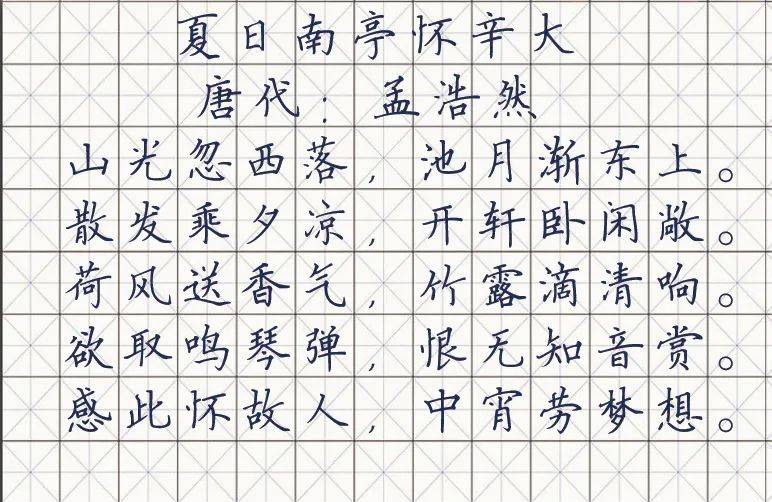 夏日南亭怀辛大
唐代：孟浩然
山光忽西落，池月渐东上。
散发乘夕凉，开轩卧闲敞。
荷风送香气，竹露滴清响。
欲取鸣琴弹，恨无知音赏。
感此怀故人，中宵劳梦想。